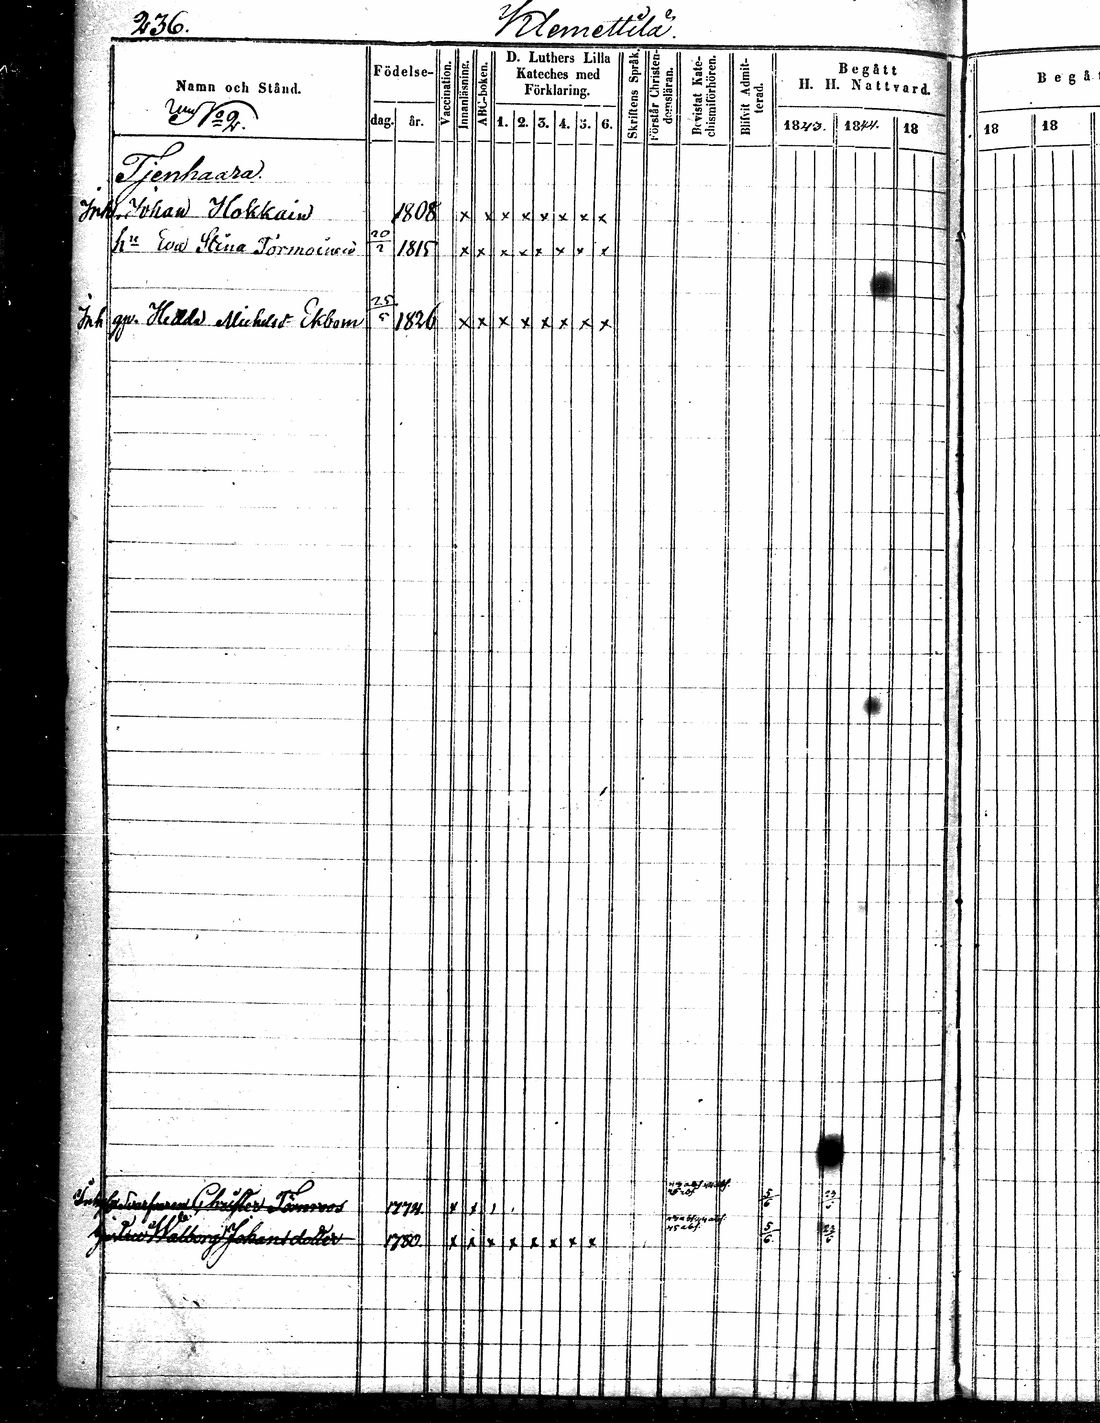 236. Klemettilä.
Namn och Stånd.
No 2.
Födelse-
dag. år.
Vaccination.
Innanläsning.
ABC-boken.
D. Luthers Lilla
Kateches med
Förklaring.
1. 2. 3. 4. 5. 6.
Skriftens Språk.
Förstår Christen-
domsläran.
Bevistat Kate-
chismiförhören.
Blifvit Admit-
terad.
Begått
H. H. Nattvard.
1843. 1844. 18
Begåt
18 18
Tjenhaara.
Inh. Johan Hokkain 1808 x x x x x x x x
hu Eva Stina 20/2 1815 x x x x x x x x
Inh gp. Hedda Michelsd Ekbom 25/5 1826 x x x x x x x x
Christer Törnroos 1774 x x
Walborg Johansdotter 1780 x x x x x x x x